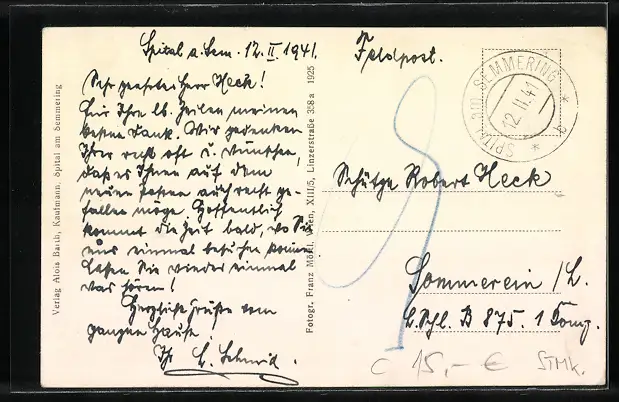 Spital a. Sem. 12.II.1941.
Sehr geehrter Herr Heck!
Für Ihre lb. Zeilen meinen
besten Dank. Wir gedenken
Ihrer recht oft u. wünschen,
daß es Ihnen auf dem
neuen Posten auch recht ge-
fallen möge. Hoffentlich
kommt die Zeit bald, wo Sie
uns einmal besuchen kommen.
Lassen Sie wieder einmal
was hören!
Herzliche Grüße vom
ganzen Hause
Ihr
Verlag Alois Barth, Kaufmann, Spital am Semmering
Fotogr. Franz Mößl, Wien, XIII/5, Linzerstraße 338a 1925
Feldpost.
SPITAL AM SEMMERING
12.II.41
* a *
Schütze Robert Heck
Sommerein /L.
B 875. 1 Komp.
15,- €
STMK.